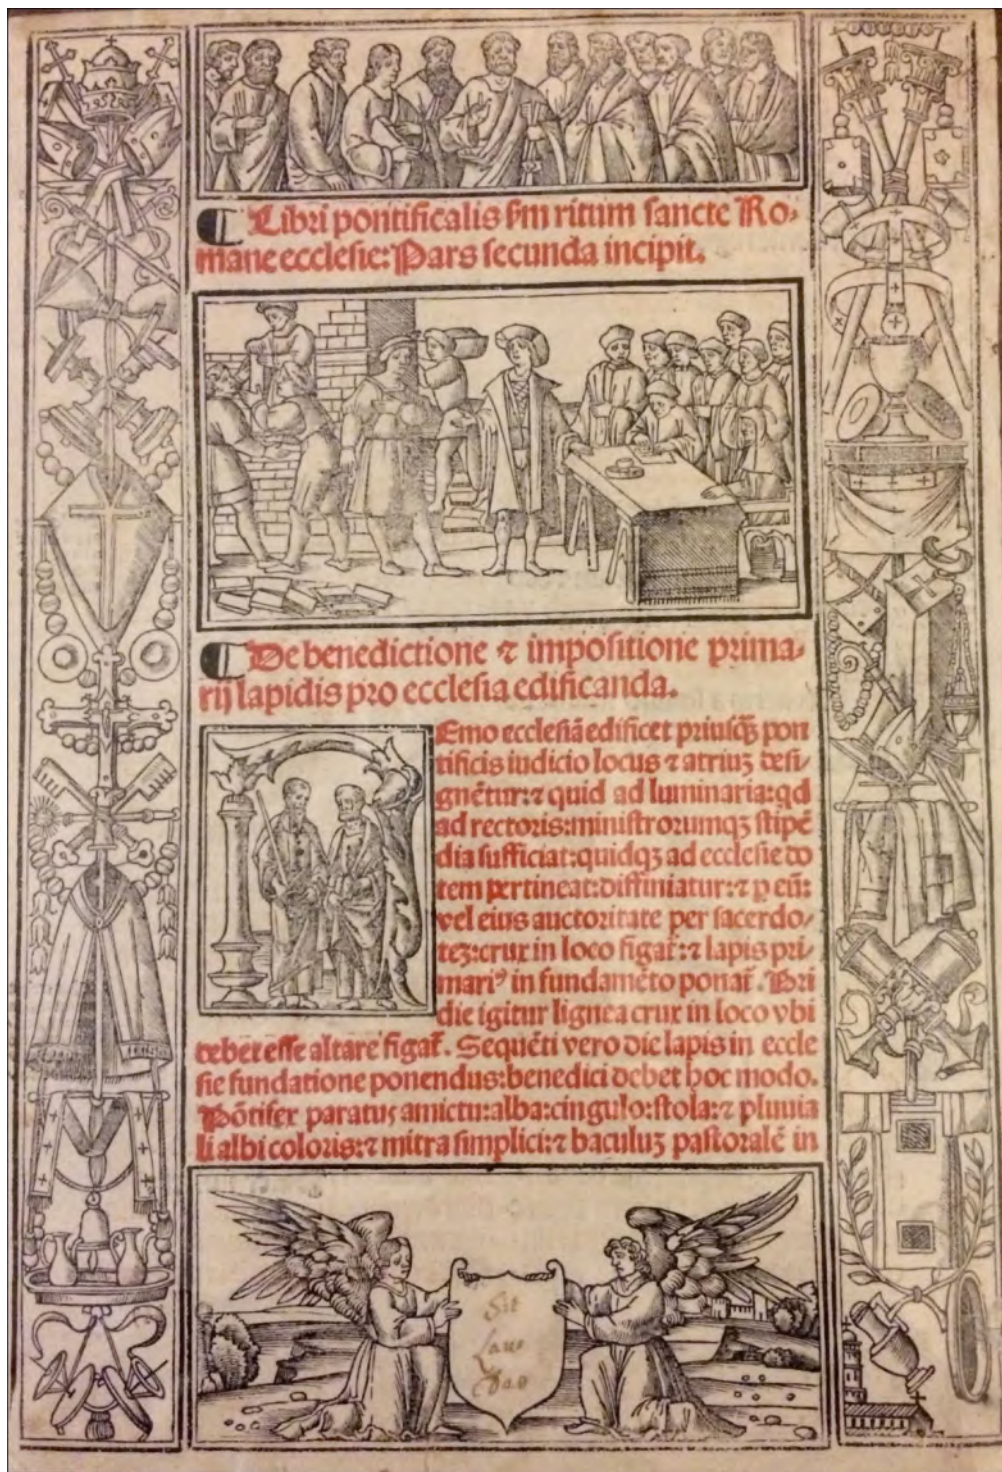 Libri pontificalis s̄m ritum sancte Ro⸗
mane ecclesie: Pars secunda incipit.
De benedictione ⁊ impositione prima⸗
rij lapidis pro ecclesia edificanda.
Emo ecclesiā edificet priusq̄ʒ pon
tificis iudicio locus ⁊ atriuʒ desi⸗
gnētur: ⁊ quid ad luminaria: qd
ad rectoris: ministrorumqʒ stipē
dia sufficiat: quidqʒ ad ecclesie do
tem pertineat: diffiniatur: ⁊ p eū:
vel eius auctoritate per sacerdo⸗
teʒ: crux in loco figat̄: ⁊ lapis pri⸗
mariꝰ in fundamēto ponat̄. Pri
die igitur lignea crux in loco vbi
debet esse altare figat̄. Sequēti vero die lapis in eccle
sie fundatione ponendus: benedici debet hoc modo.
Pōtifex paratus amictu: alba: cingulo: stola: ⁊ pluuia
li albi coloris: ⁊ mitra simplici: ⁊ baculuʒ pastoralē in
Sit
Laus
Deo